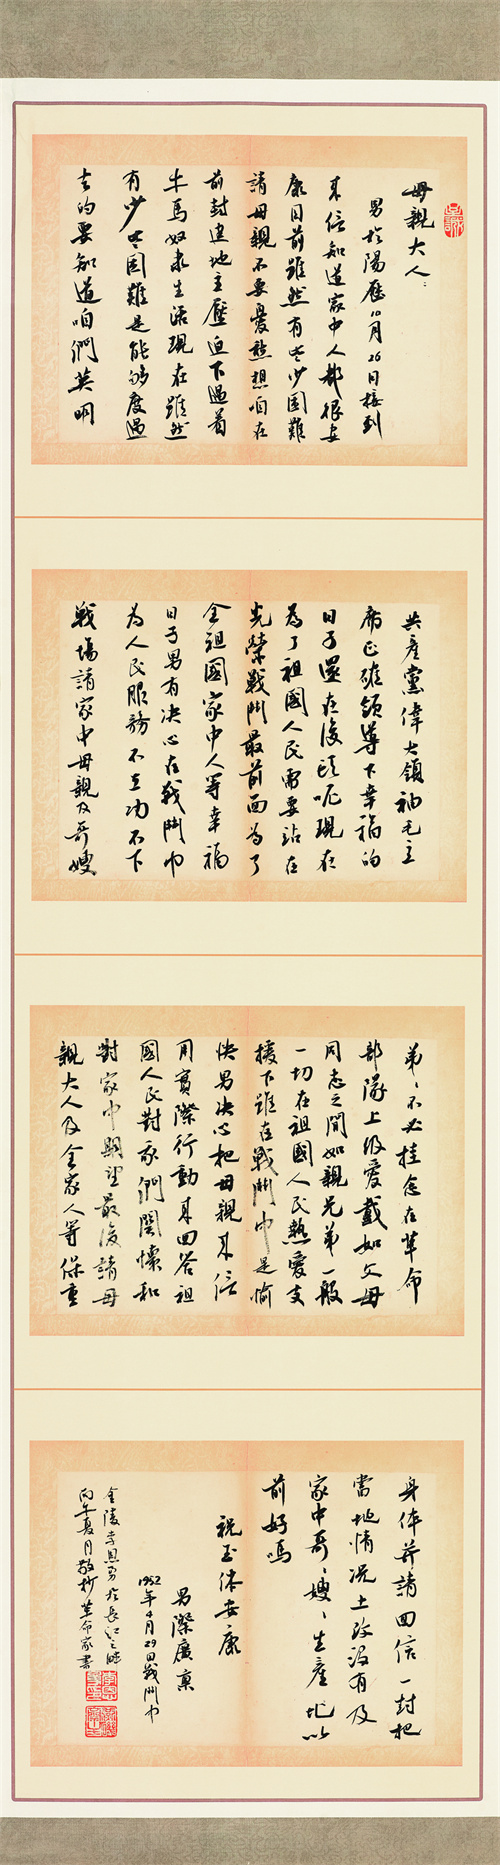 母親大人：
男於陽歷10月26日接到
來信知道家中人都很安
康目前雖然有些少困難
請母親不要憂愁想咱在
前封建地主壓迫下過着
牛馬奴隶生活現在雖然
有少些困難是能够度過
去的要知道咱們英明
共產黨偉大領袖毛主
席正確領導下幸福的
日子還在後頭呢現在
為了祖國人民需要站在
光榮戰鬥最前面為了
全祖國家中人等幸福
日子男有决心在戰鬥中
為人民服務不立功不下
戰場請家中母親及哥嫂
弟、不必挂念在革命
部隊上级爱戴如父母
同志之間如親兄弟一般
一切在祖國人民熱愛支
援下雖在戰鬥中是愉
快男决心把母親來信
用實際行動來回答祖
國人民對我們関懷和
對家中期望最後請母
親大人及全家人等保重
身体並請回信一封把
當地情况土改没有及
家中哥、嫂、生產地以
前好嗎
祝玉体安康
男際廣禀
1952年4月29日戰鬥中
金陵李恩勇於長江之畔
丙午夏月敬抄革命家書